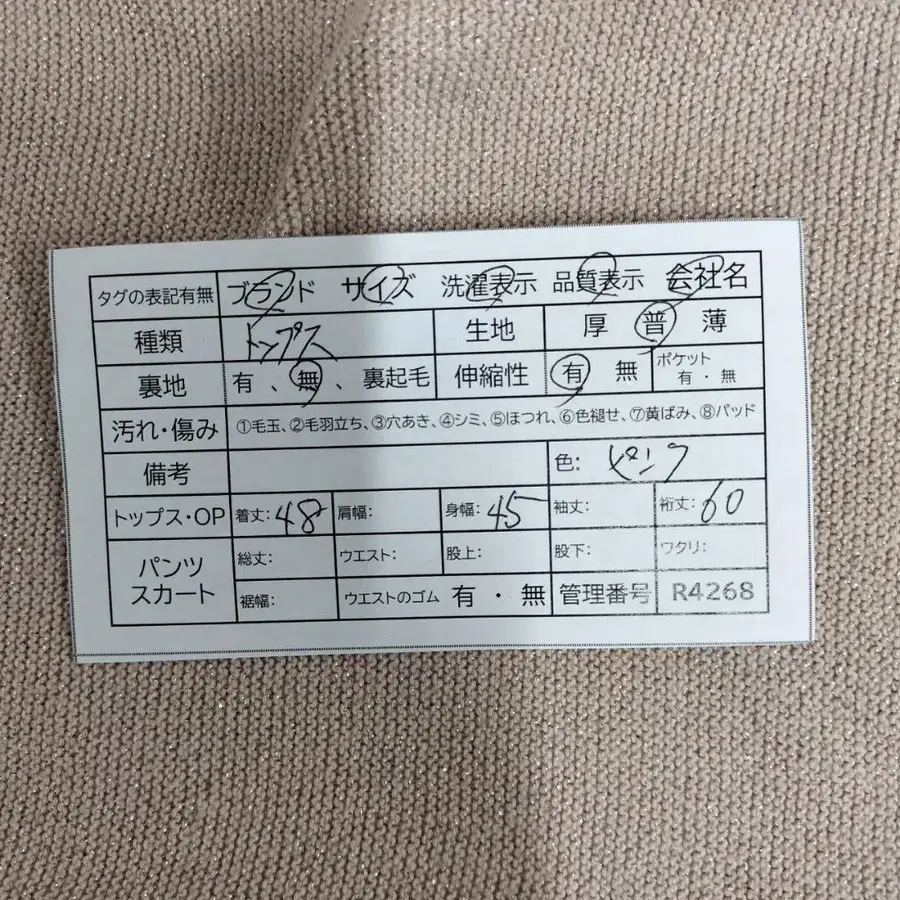 タグの表記有無 ブランド サイズ 洗濯表示 品質表示 会社名
種類 トップス 生地 厚 普 薄
裏地 有、無、裏起毛 伸縮性 有 無 ポケット 有・無
汚れ・傷み ①毛玉、②毛羽立ち、③穴あき、④シミ、⑤ほつれ、⑥色褪せ、⑦黄ばみ、⑧パッド
備考 色: ピンク
トップス・OP 着丈:48 肩幅: 身幅:45 袖丈: 裄丈:60
パンツ スカート 総丈: ウエスト: 股上: 股下: ワタリ:
裾幅: ウエストのゴム 有・無 管理番号 R4268